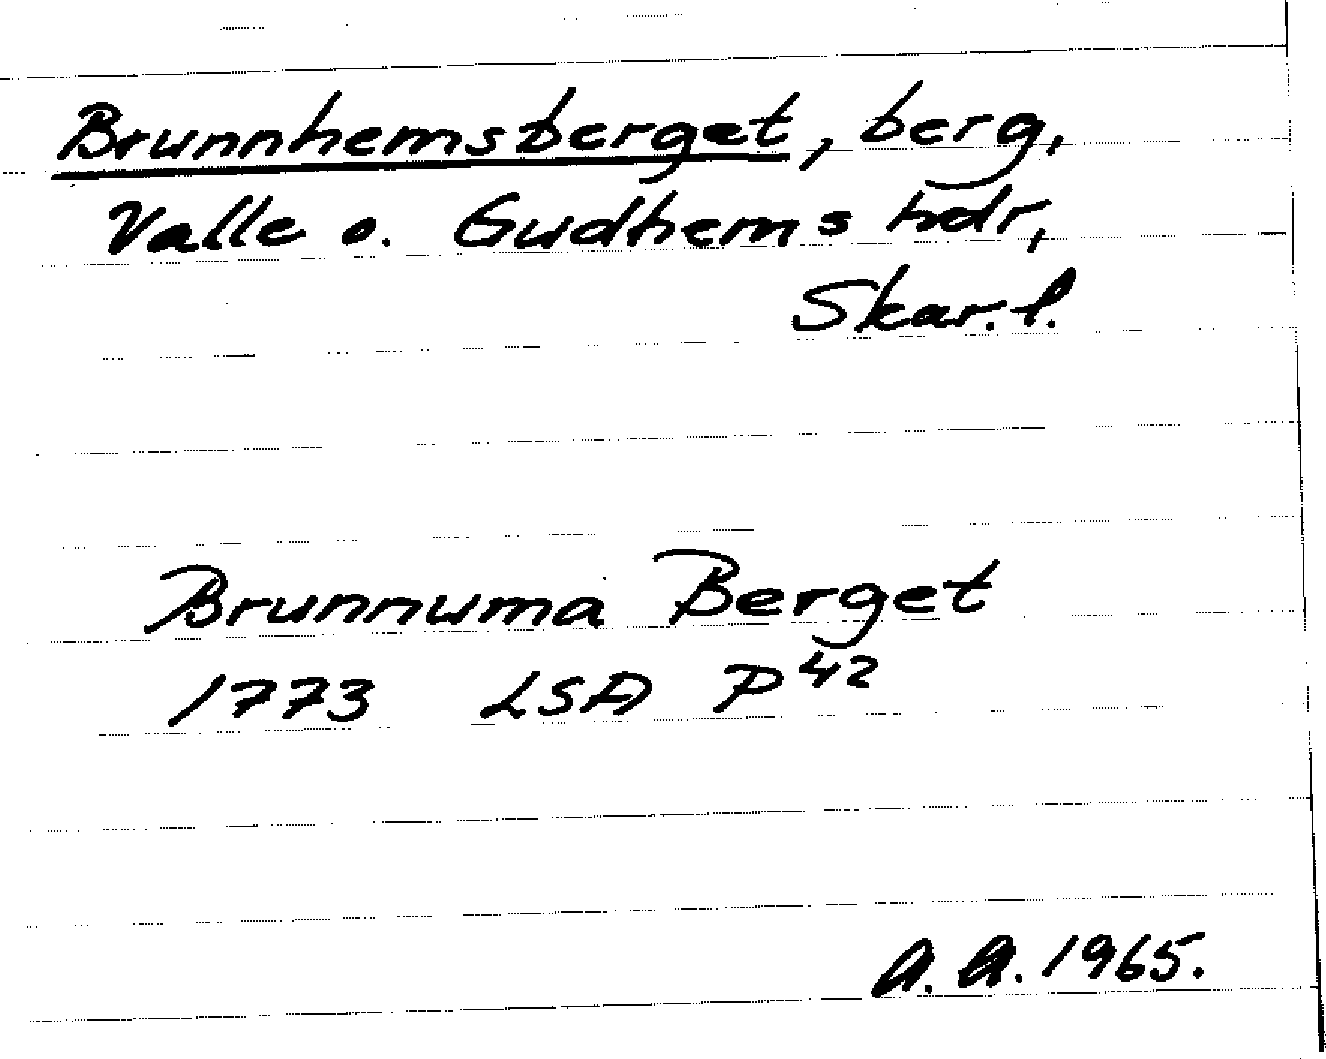 Brunnhemsberget, berg,
Valle o. Gudhems hdr,
Skar. l.
Brunnuma Berget
1773 LSA P 42
A. A. 1965.